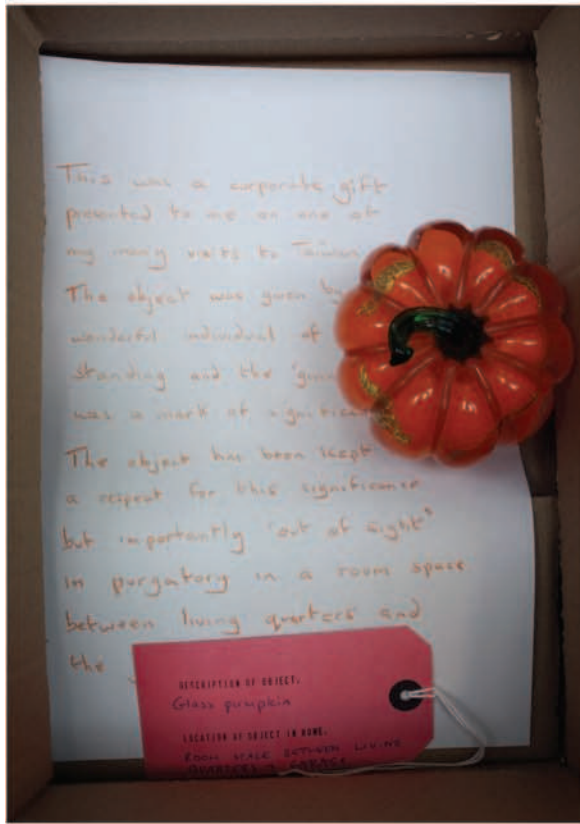 This was a corporate gift
presented to me on one of
my many visits to Taiwan
The object was given by
wonderful individual of
standing and the
was a mark of
The object has been kept
a respect for this significance
but importantly "out of sight"
in purgatory in a room space
between living quarters and
the
DESCRIPTION OF OBJECT.
Glass pumpkin
LOCATION OF OBJECT IN HOME.
ROOM SPACE BETWEEN LIVING
QUARTERS + GARAGE